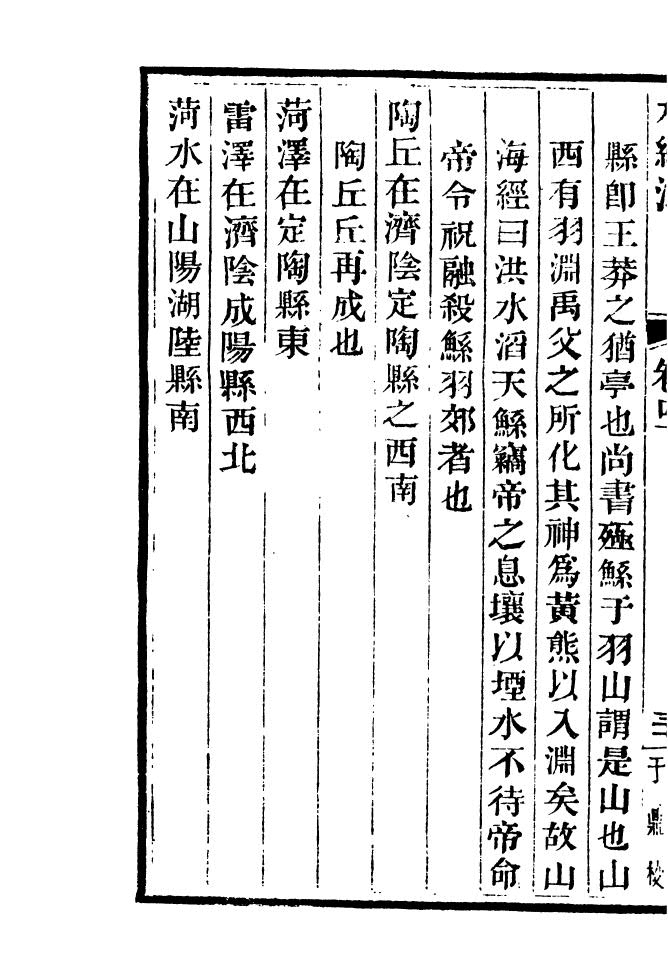 水經注
卷四
于鼎校
縣卽王莽之猶亭也尚書殛鯀于羽山謂是山也山
西有羽淵禹父之所化其神爲黃熊以入淵矣故山
海經曰洪水滔天鯀竊帝之息壤以堙水不待帝命
帝令祝融殺鯀羽郊者也
陶丘在濟陰定陶縣之西南
陶丘丘再成也
菏澤在定陶縣東
雷澤在濟陰成陽縣西北
菏水在山陽湖陸縣南